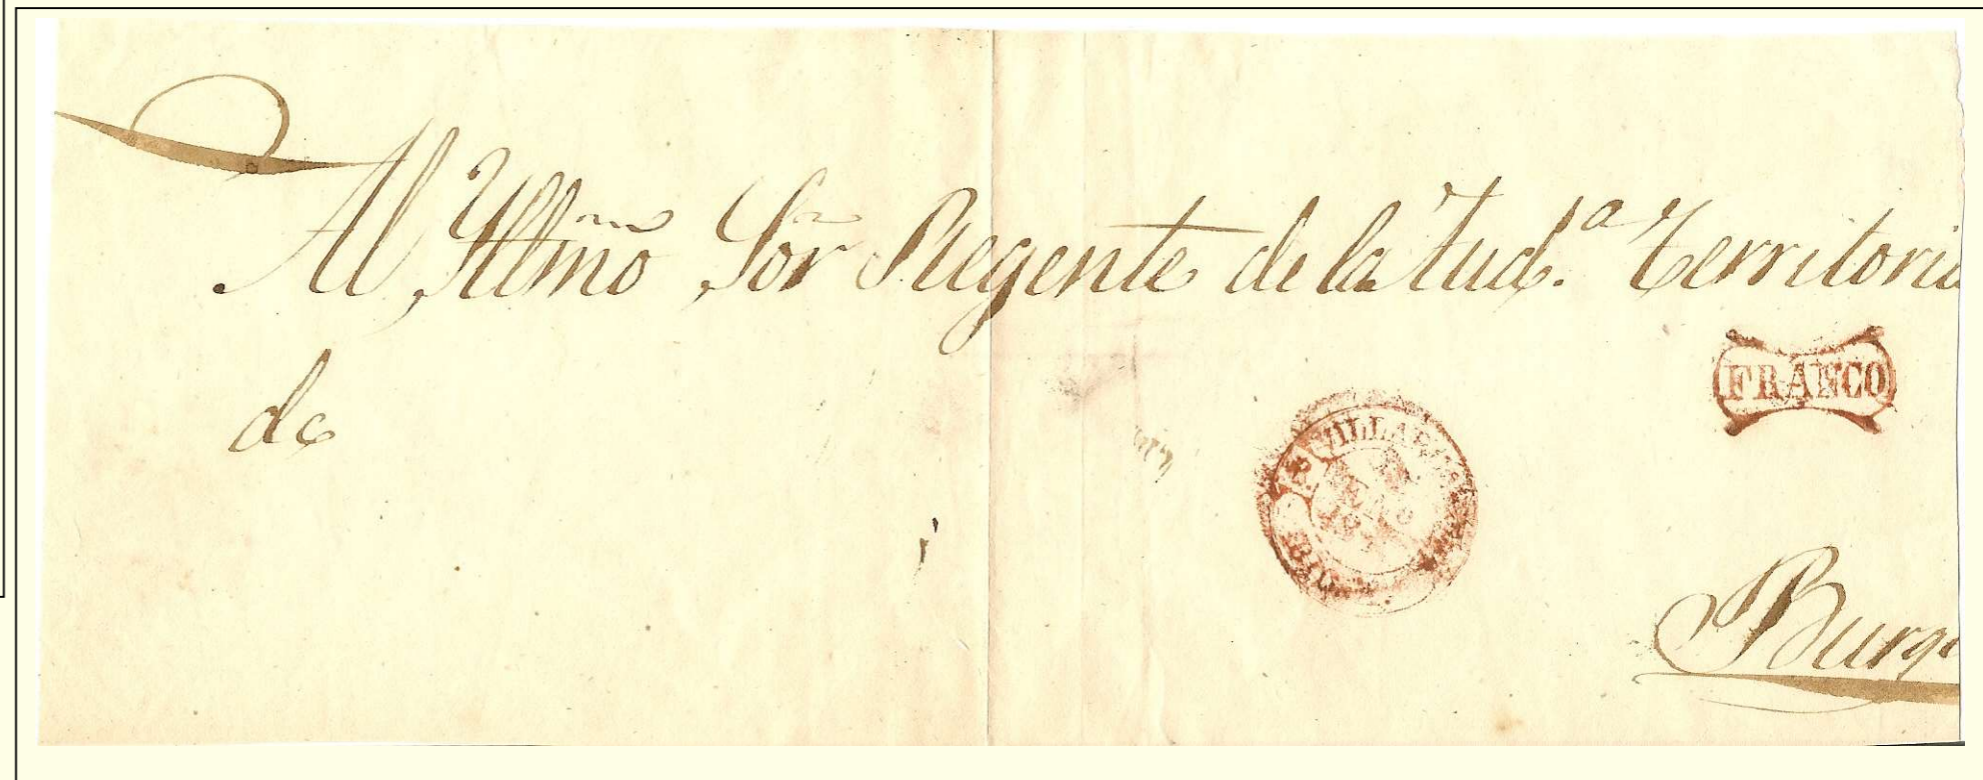 Al Yltmo Sor Regente de la Aud.a Territoria
de
FRANCO
VILLAR
Burgo